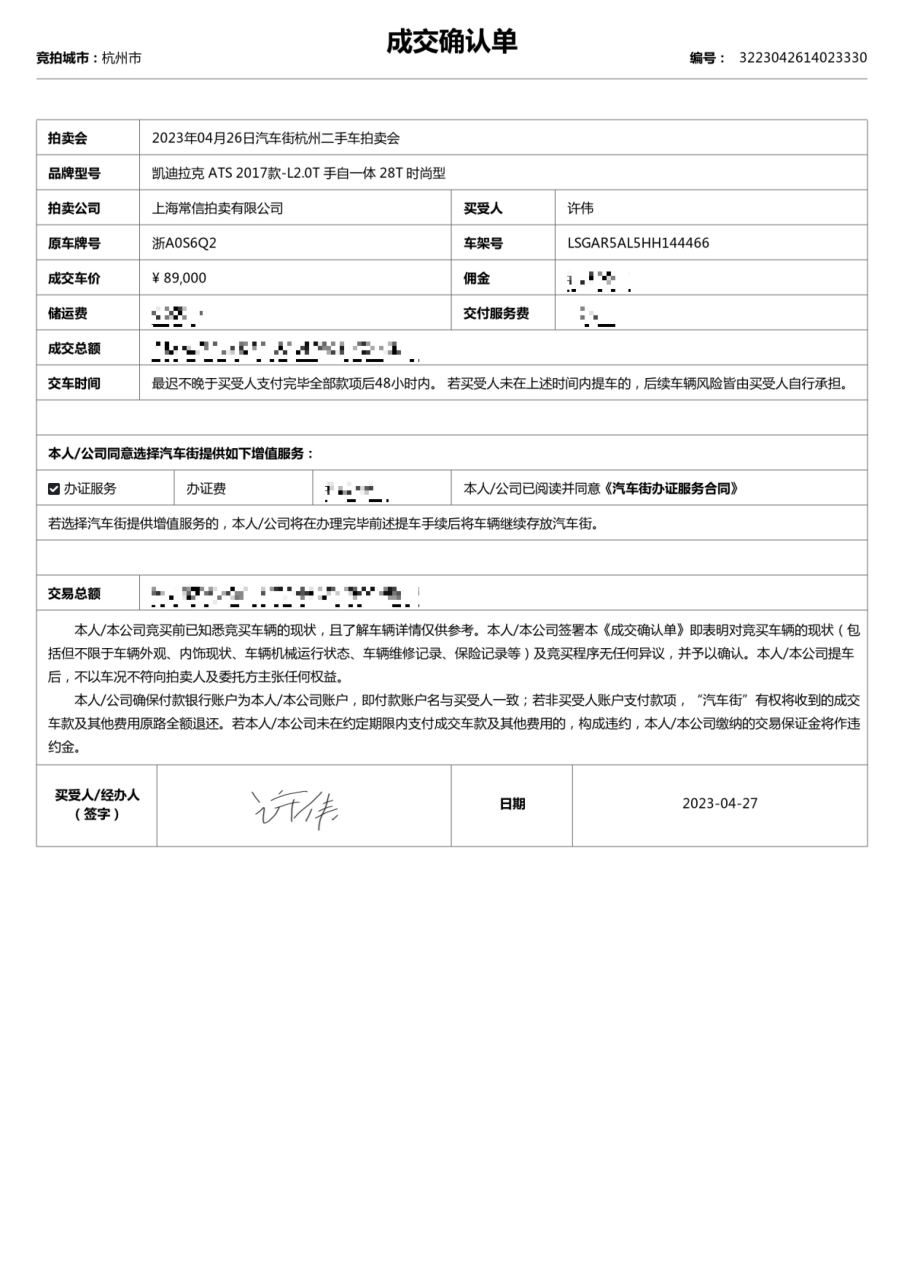 成交确认单
竞拍城市：杭州市
编号： 3223042614023330
拍卖会 2023年04月26日汽车街杭州二手车拍卖会
品牌型号 凯迪拉克 ATS 2017款-L2.0T 手自一体 28T 时尚型
拍卖公司 上海常信拍卖有限公司 买受人 许伟
原车牌号 浙A0S6Q2 车架号 LSGAR5AL5HH144466
成交车价 ¥ 89,000 佣金
储运费 交付服务费
成交总额
交车时间 最迟不晚于买受人支付完毕全部款项后48小时内。 若买受人未在上述时间内提车的，后续车辆风险皆由买受人自行承担。
本人/公司同意选择汽车街提供如下增值服务：
办证服务 办证费 本人/公司已阅读并同意《汽车街办证服务合同》
若选择汽车街提供增值服务的，本人/公司将在办理完毕前述提车手续后将车辆继续存放汽车街。
交易总额
本人/本公司竞买前已知悉竞买车辆的现状，且了解车辆详情仅供参考。本人/本公司签署本《成交确认单》即表明对竞买车辆的现状（包
括但不限于车辆外观、内饰现状、车辆机械运行状态、车辆维修记录、保险记录等）及竞买程序无任何异议，并予以确认。本人/本公司提车
后，不以车况不符向拍卖人及委托方主张任何权益。
本人/公司确保付款银行账户为本人/本公司账户，即付款账户名与买受人一致；若非买受人账户支付款项，“汽车街”有权将收到的成交
车款及其他费用原路全额退还。若本人/本公司未在约定期限内支付成交车款及其他费用的，构成违约，本人/本公司缴纳的交易保证金将作违
约金。
买受人/经办人
（签字） 许伟 日期 2023-04-27